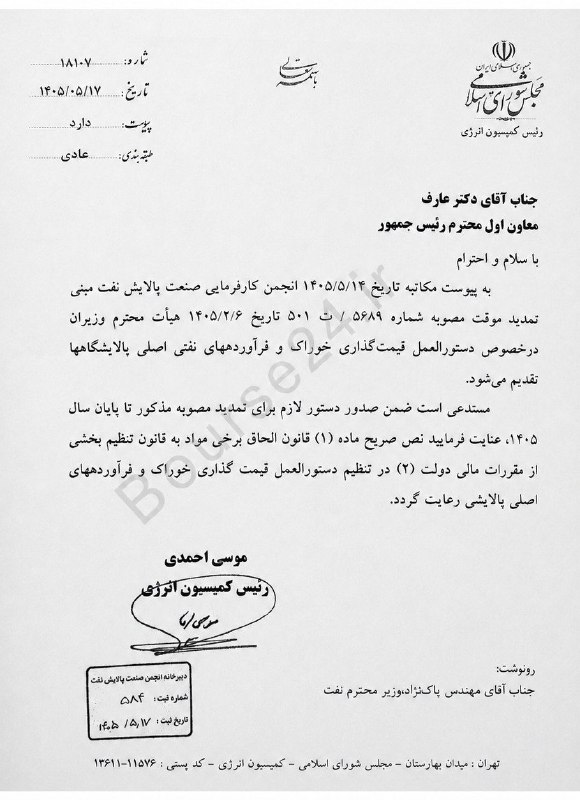 باسمه تعالی
جمهوری اسلامی ایران
مجلس شورای اسلامی
رئیس کمیسیون انرژی
شماره: ۱۸۱۰۷
تاریخ: ۱۴۰۵/۰۵/۱۷
پیوست: دارد
طبقه بندی: عادی
جناب آقای دکتر عارف
معاون اول محترم رئیس جمهور
با سلام و احترام
به پیوست مکاتبه تاریخ ۱۴۰۵/۵/۱۴ انجمن کارفرمایی صنعت پالایش نفت مبنی
تمدید موقت مصوبه شماره ۵۶۸۹ / ت ۵۰۱ تاریخ ۱۴۰۵/۲/۶ هیأت محترم وزیران
درخصوص دستورالعمل قیمت‌گذاری خوراک و فرآوردههای نفتی اصلی پالایشگاهها
تقدیم می‌شود.
مستدعی است ضمن صدور دستور لازم برای تمدید مصوبه مذکور تا پایان سال
۱۴۰۵، عنایت فرمایید نص صریح ماده (۱) قانون الحاق برخی مواد به قانون تنظیم بخشی
از مقررات مالی دولت (۲) در تنظیم دستورالعمل قیمت گذاری خوراک و فرآوردههای
اصلی پالایشی رعایت گردد.
Bourse24.ir
موسی احمدی
رئیس کمیسیون انرژی
دبیرخانه انجمن صنعت پالایش نفت
شماره ثبت: ۵۸۴
تاریخ ثبت: ۱۴۰۵/۵/۱۷
رونوشت:
جناب آقای مهندس پاک‌نژاد،وزیر محترم نفت
تهران : میدان بهارستان - مجلس شورای اسلامی - کمیسیون انرژی - کد پستی : ۱۱۵۷۶-۱۳۶۱۱